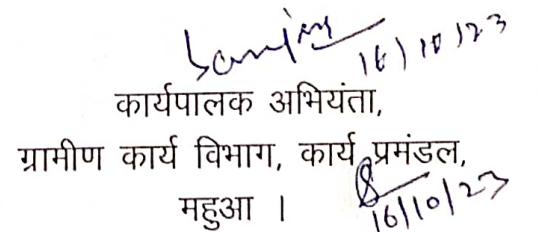 16/10/23
कार्यपालक अभियंता,
ग्रामीण कार्य विभाग, कार्य प्रमंडल,
महुआ ।
16/10/23